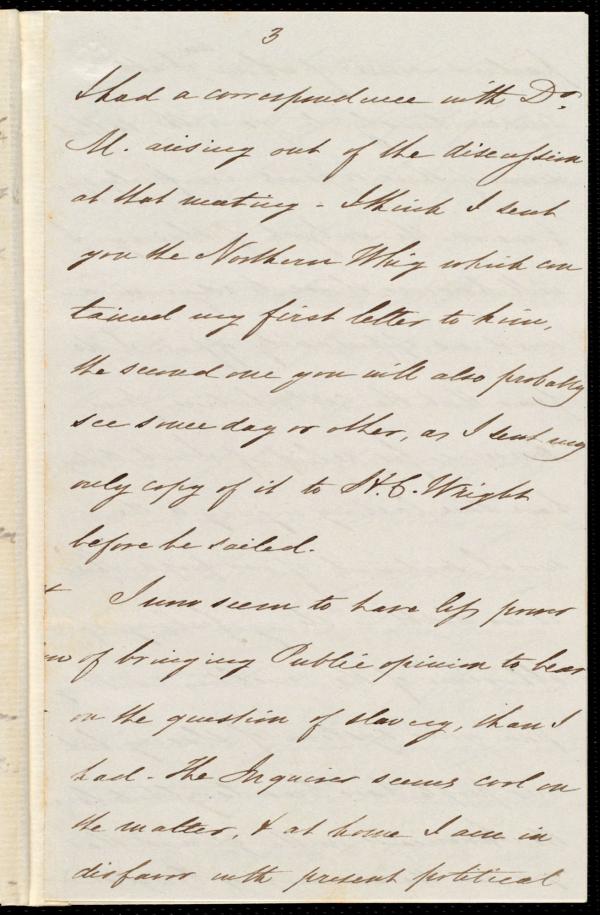 3
I had a correspondence with Dr.
M. arising out of the discussion
at that meeting - I think I sent
you the Northern Whig which con
tained my first letter to him,
the second one you will also probably
see some day or other, as I sent my
only copy of it to H. C. Wright
before he sailed.
I now seem to have less power
of bringing Public opinion to bear
on the question of slavery, than I
had - The Inquirer seems cool on
the matter, & at home I am in
disfavor with present political